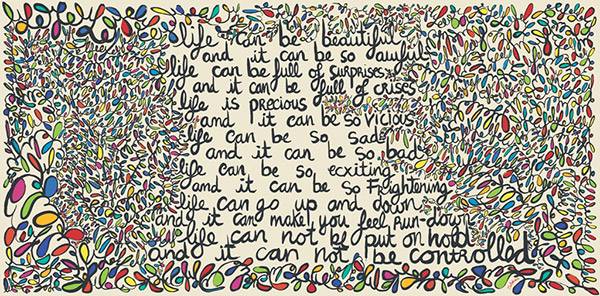 life can be beautiful
and it can be so awful
life can be full of SURPRISES
and it can be full of CRISES
life is precious
and it can be so vicious
life can be so sad
and it can be so bad
life can be so exciting
and it can be so Frightening
life can go up and down
and it can make you feel run-down
life can not be put on hold
and it can not be controlled